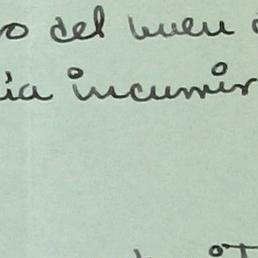 o del buen
ia incurrir